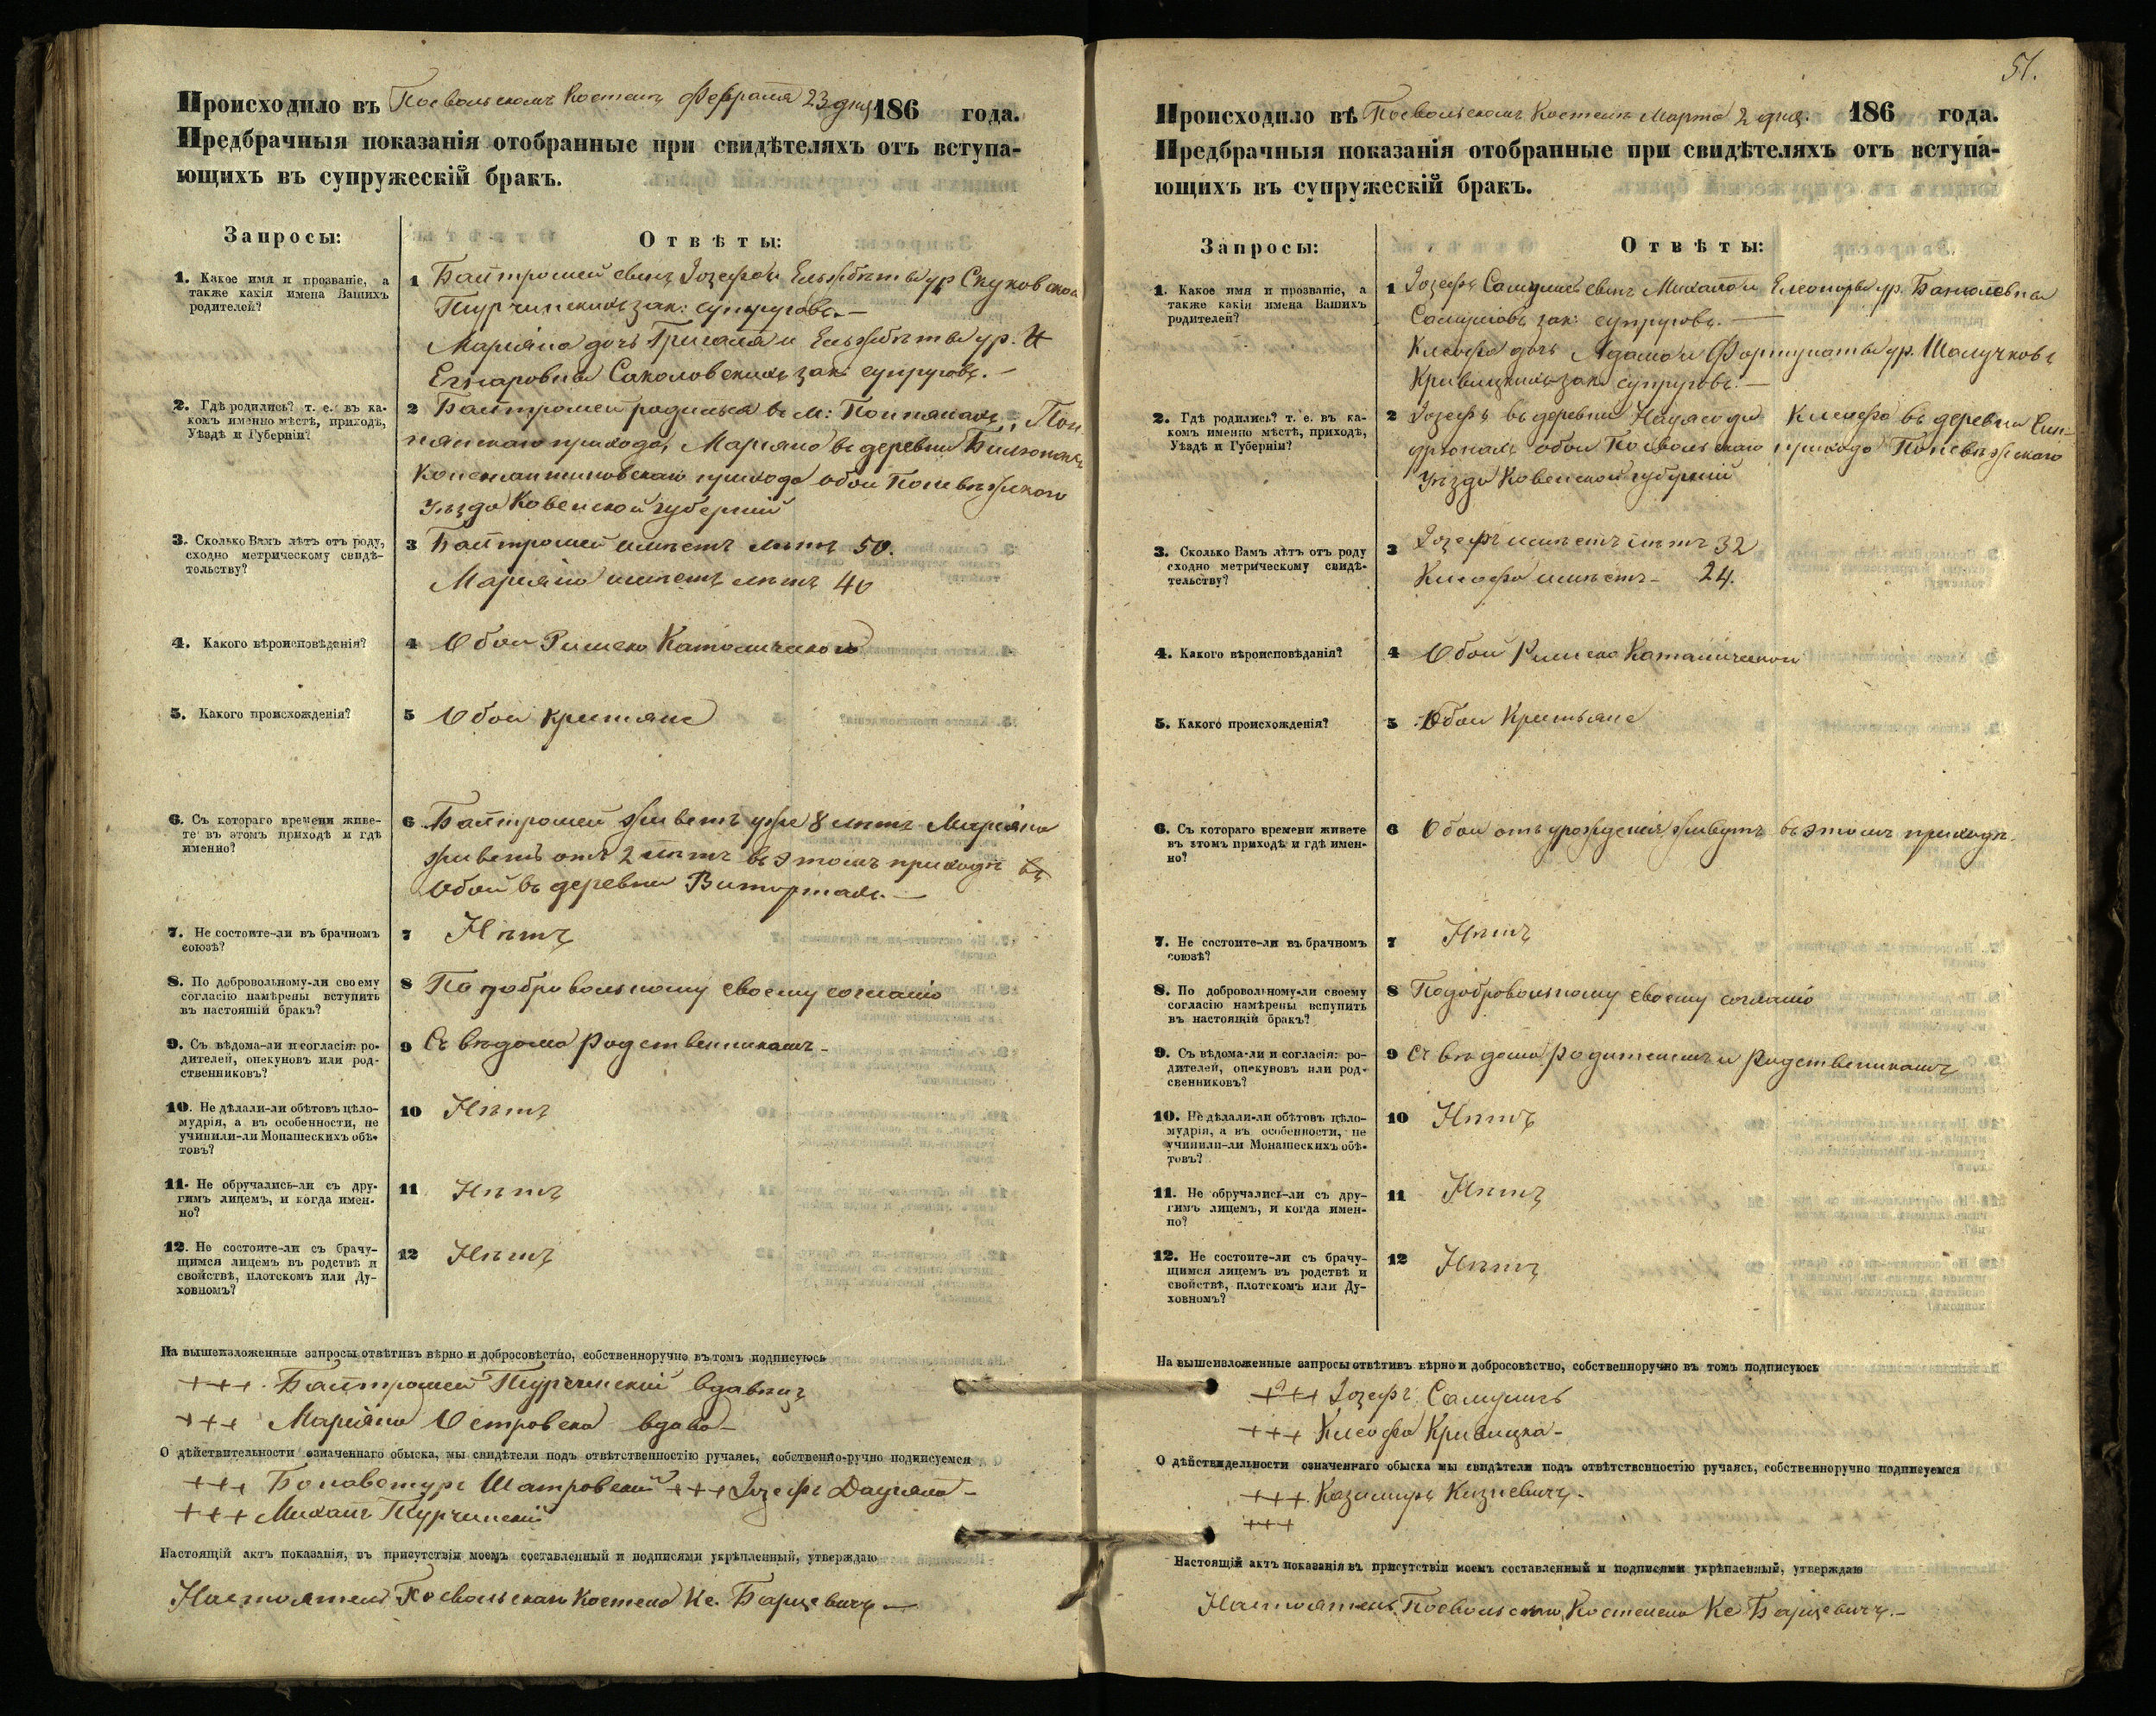 Происходило въ Посвольскомъ Костелѣ Февраля 23 дня 186 года.
Предбрачныя показанія отобранные при свидѣтеляхъ отъ вступа-
ющихъ въ супружескій бракъ.
Запросы:
Отвѣты:
1. Какое имя и прозваніе, а
также какія имена Вашихъ
родителей?
1 Балтромей сынъ Іозефа и Ельжбѣты ур
зак: супруговъ.—
Маріяна дочь Григаля и Ельжбѣты ур.
Соколовскихъ зак: супруговъ.—
2. Гдѣ родились? т. е. въ ка-
комъ именно мѣстѣ, приходѣ,
Уѣздѣ и Губерніи?
2 Балтромей родился въ м:
прихода, Маріяна въ деревни
Константиновскаго прихода обои Поневѣжскаго
Уѣзда Ковенской губерній
3. Сколько Вамъ лѣтъ отъ роду,
сходно метрическому свидѣ-
тольству?
3 Балтромей имѣетъ лѣтъ 50.
Маріяна имѣетъ лѣтъ 40
4. Какого вѣроисповѣданія?
4 Обои Римско Католическаго
5. Какого происхожденія?
5 Обои
6. Съ котораго времени живе-
те въ этомъ приходѣ и гдѣ
именно?
6 Балтромей живетъ уже 8 лѣтъ Маріяна
живетъ отъ 2 лѣтъ въ этомъ приходѣ
Обои въ деревни
7. Не состоите-ли въ брачномъ
союзѣ?
7 Нѣтъ
8. По добровольному-ли своему
согласію намѣрены вступить
въ настоящій бракъ?
8 По добровольному своему согласію
9. Съ вѣдома-ли и согласія: ро-
дителей, опекуновъ или род-
ственниковъ?
9 Съ вѣдома родственникамъ—
10. Не дѣлали-ли обѣтовъ цѣло-
мудрія, а въ особенности, не
учинили-ли Монашескихъ обѣ-
товъ?
10 Нѣтъ
11. Не обручались-ли съ дру-
гимъ лицемъ, и когда имен-
но?
11 Нѣтъ
12. Не состоите-ли съ брачу-
щимся лицемъ въ родствѣ и
свойствѣ, плотскомъ или Ду-
ховномъ?
12 Нѣтъ
На вышеизложенные запросы отвѣтивъ вѣрно и добросовѣстно, собственноручно въ томъ подписуюсь
+++ Балтромей Турчинскій вдавецъ
+++ Маріяна Островска вдава—
О дѣйствительности означеннаго обыска, мы свидѣтели подъ отвѣтственностію ручаясь, собственно-ручно подписуемся
+++ Бонавентуръ Шатровскій +++ Іозефъ
+++ Михаилъ Турчинскій
Настоящій актъ показанія, въ присутствіи моемъ составленный и подписями укрѣпленный, утверждаю
Настоятель Посвольскаго Костела Кс. Барцевичъ.—
51.
Происходило въ Посвольскомъ Костелѣ Марта 2 дня. 186 года.
Предбрачныя показанія отобранные при свидѣтеляхъ отъ вступа-
ющихъ въ супружескій бракъ.
Запросы:
Отвѣты:
1. Какое имя и прозваніе, а
также какія имена Вашихъ
родителей?
1 Іозефъ сынъ Михала и Елеоноры ур.
зак: супруговъ.—
Клеофа дочь Адама и Фортунаты ур.
Кривицкихъ зак: супруговъ.—
2. Гдѣ родились? т. е. въ ка-
комъ именно мѣстѣ, приходѣ,
Уѣздѣ и Губерніи?
2 Іозефъ въ деревни Клеофа въ деревни
обои Посвольскаго прихода Поневѣжскаго
Уѣзда Ковенской губерній
3. Сколько Вамъ лѣтъ отъ роду
сходно метрическому свидѣ-
тельству?
3 Іозефъ имѣетъ лѣтъ 32
Клеофа имѣетъ— 24.
4. Какого вѣроисповѣданія?
4 Обои Римско Католической
5. Какого происхожденія?
5 Обои
6. Съ котораго времени живете
въ этомъ приходѣ и гдѣ имен-
но?
6 Обои отъ урожденія живутъ въ этомъ приходѣ.
7. Не состоите-ли въ брачномъ
союзѣ?
7 Нѣтъ
8. По добровольному-ли своему
согласію намѣрены вспупить
въ настоящій бракъ?
8 По добровольному своему согласію
9. Съ вѣдома-ли и согласія: ро-
дителей, опекуновъ или род-
свенниковъ?
9 Съ вѣдома родителемъ и родственикамъ
10. Не дѣлали-ли обѣтовъ цѣло-
мудрія, а въ особенности, не
учинили-ли Монашескихъ обѣ-
товъ?
10 Нѣтъ
11. Не обручались-ли съ дру-
гимъ лицемъ, и когда имен-
но?
11 Нѣтъ
12. Не состоите-ли съ брачу-
щимся лицемъ въ родствѣ и
свойствѣ, плотскомъ или Ду-
ховномъ?
12 Нѣтъ
На вышеизложенные запросы отвѣтивъ вѣрно и добросовѣстно, собственноручно въ томъ подписуюсь
+++ Іозефъ
+++ Клеофа Кривицка—
О дѣйствидельности означеннаго обыска мы свидѣтели подъ отвѣтственностію ручаясь, собственноручно подписуемся
+++ Казимиръ
+++
Настоящій актъ показанія въ присутствіи моемъ составленный и подписями укрѣпленный, утверждаю
Настоятель Посвольскаго Костела Кс Барцевичъ.—